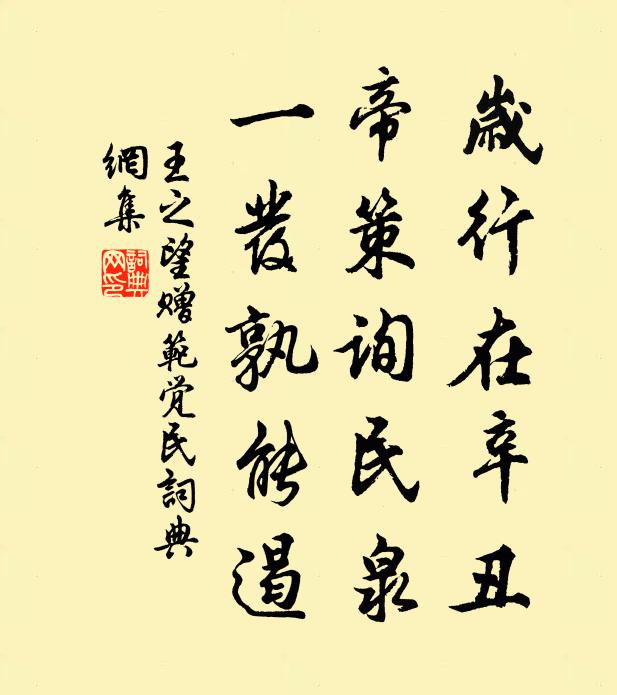 歲行在辛丑
帝策詢民泉
一發孰能遏
王之望贈範覺民詞典
網集
詞典
网印